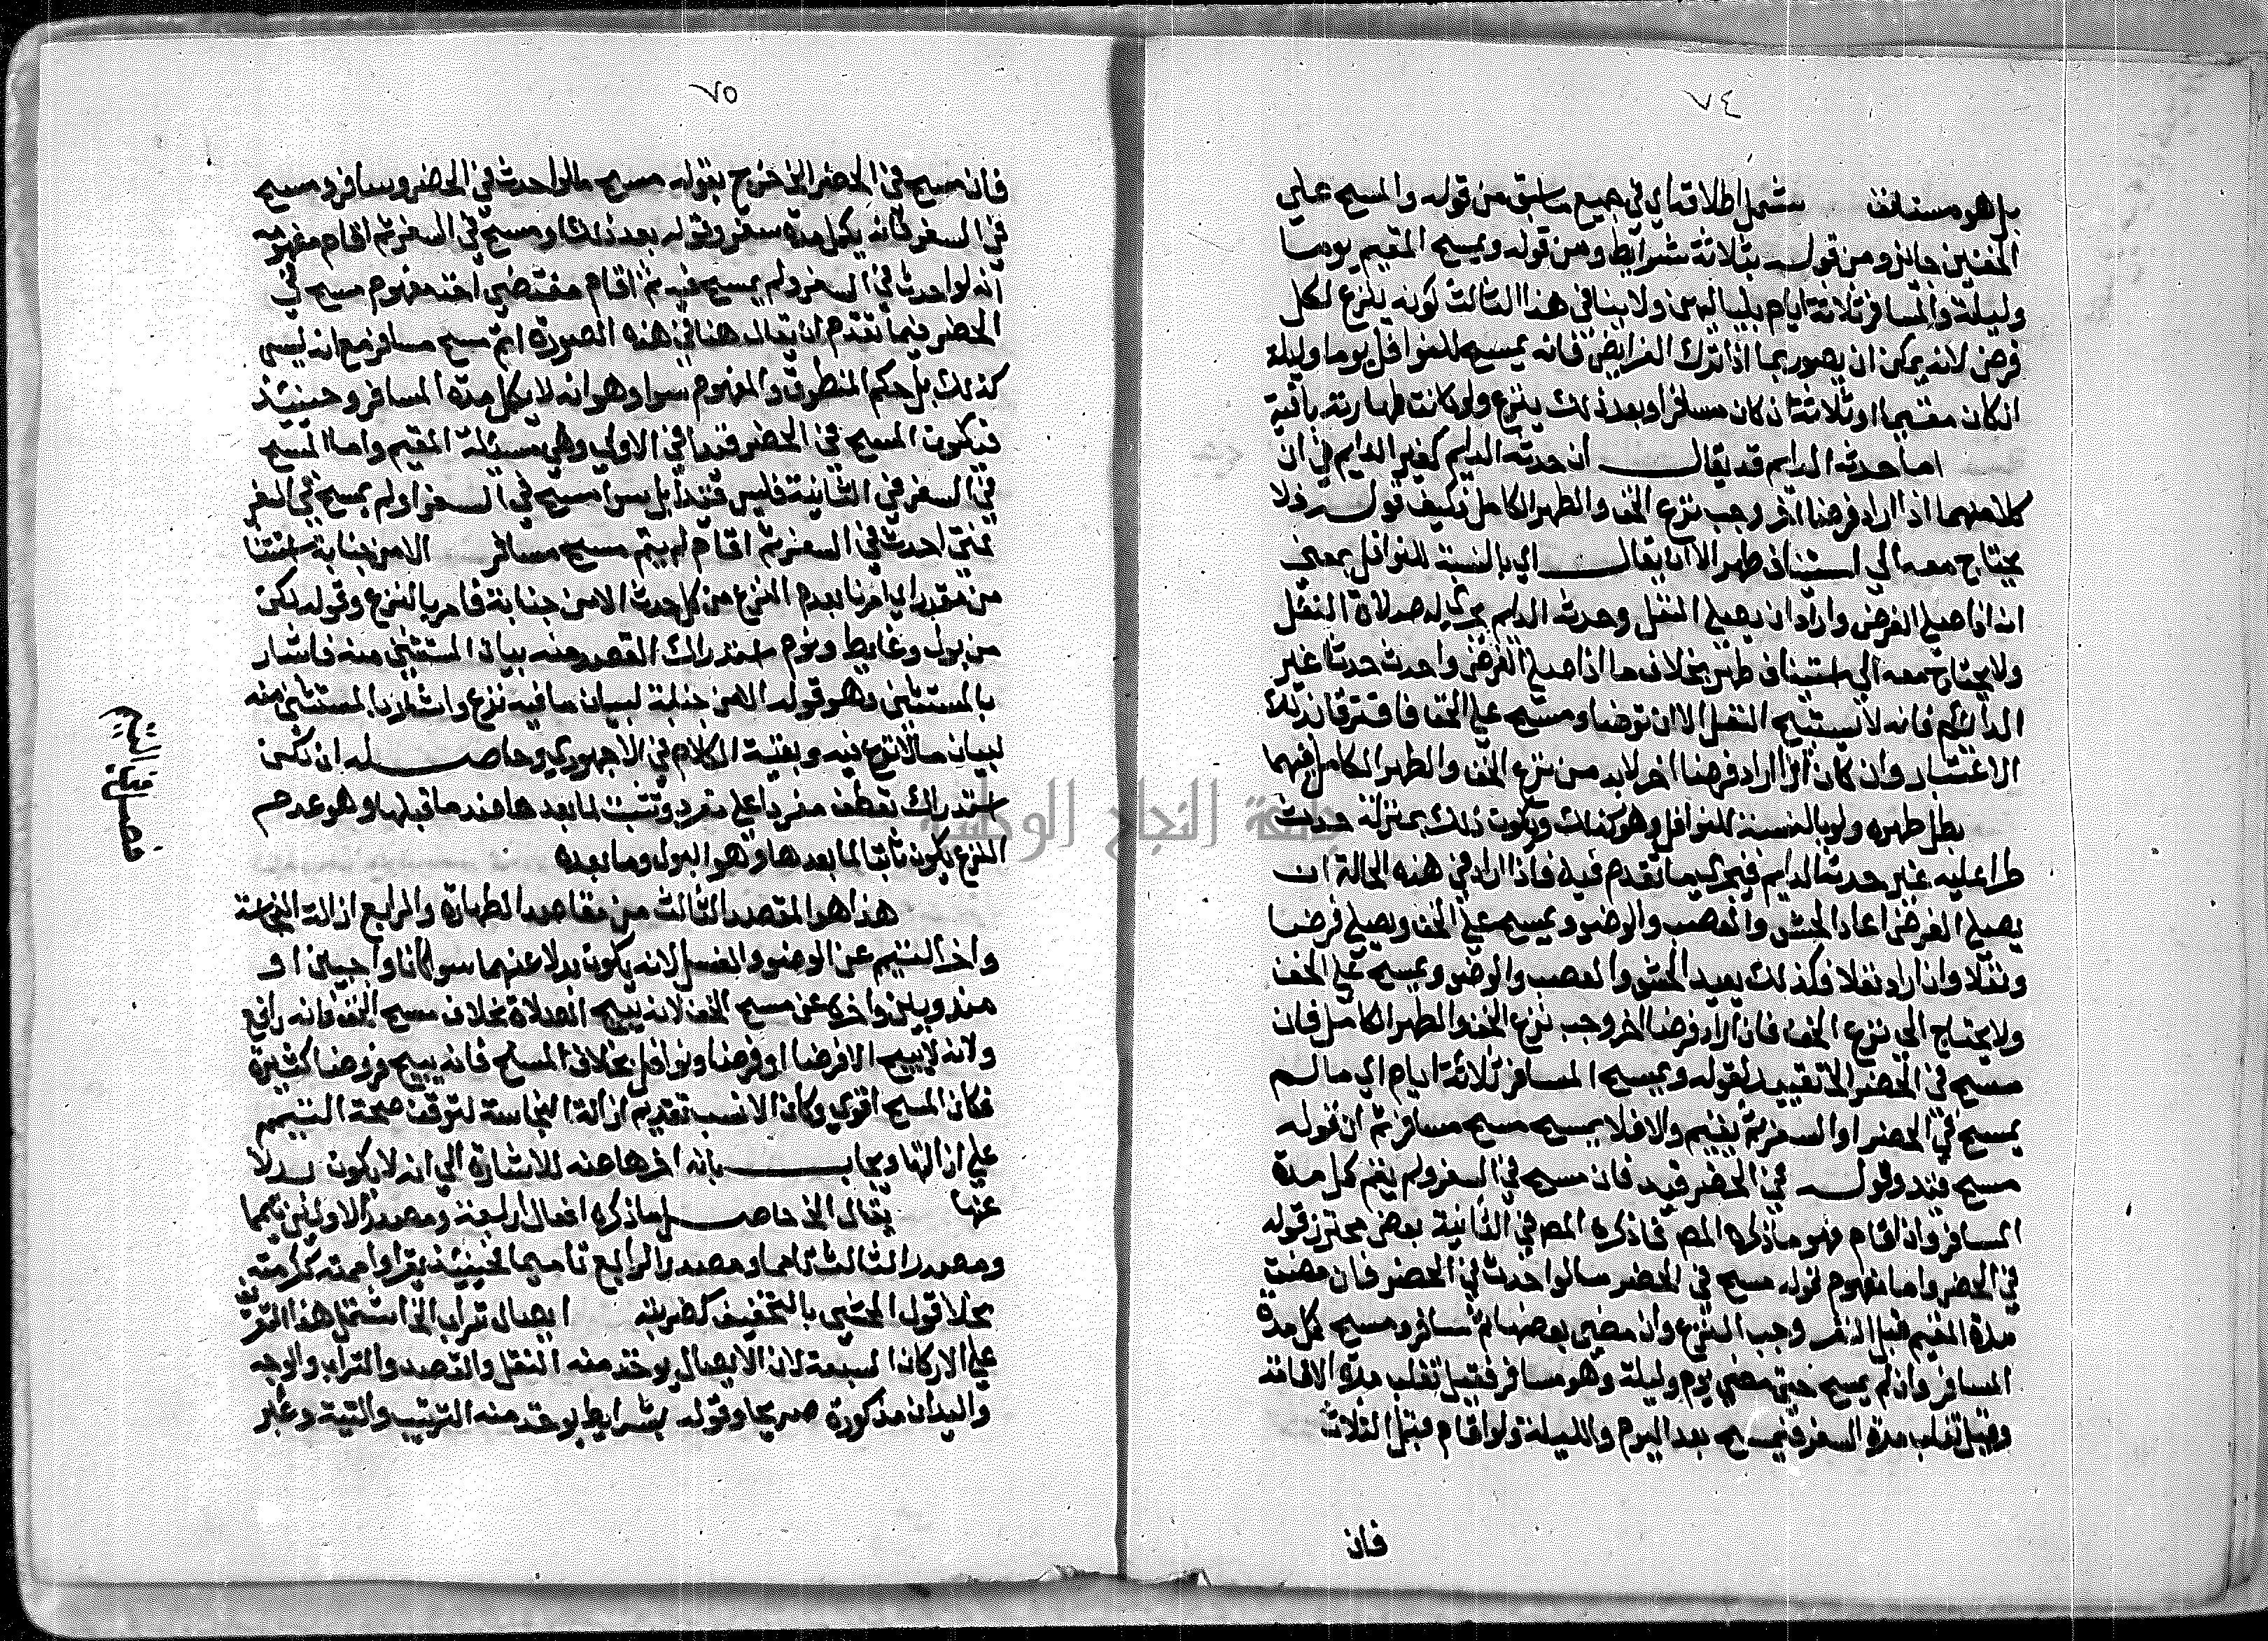 ٧٤
بل هو مستانف شمل اطلاقه اي في جميع ما سبق من قوله والمسح علي
الخفين جائز ومن قوله بثلاثة شرايط ومن قوله ويمسح المقيم يوما
وليلة والمسافر ثلاثة ايام بلياليهن ولا ينافي هذا الثالث كونه ينزع لكل
فرض لانه يمكن ان يصور بما اذا ترك الفرايض فانه يمسح للنوافل يوما وليلة
ان كان مقيما او ثلاثة ان كان مسافرا وبعد ذلك ينزع ولو كانت طهارته باقية
اما حدثه الدايم قد يقال ان حدثه الدايم كغير الدايم في ان
كلا منهما اذا اراد فرضا اخر وجب نزع الخف والطهر الكامل فكيف قوله فلا
يحتاج معه الي استيناف طهر الا ان يقال اي بالنسبة للنوافل بمعني
انه اذا صلي الفرض واراد ان يصلي النفل وحدث الدايم يجري له صلاة النفل
ولا يحتاج معه الي استيناف طهر بخلاف ما اذا صلي الفرض واحدث حدثا غير
الدائم فانه لا يستبيح النفل الا ان توضا ومسح علي الخف فافترقا بذلك
الاعتبار وان كان اذا اراد فرضا اخر لابد من نزع الخف والطهر الكامل فيهما
بطل طهره ولو بالنسبة للنوافل وهو كذلك ويكون ذلك بمنزلة حدث
طرا عليه غير حدثه الدايم فيجري ما تقدم فيه فاذا اراد في هذه الحالة ان
يصلي الفرض اعاد الحشو والعصب والوضو ويمسح علي الخف ويصلي فرضا
ونفلا وان اراد نفلا فكذلك يعيد الحشو والعصب والوضو ويمسح علي الخف
ولا يحتاج الي نزع الخف فان اراد فرضا اخر وجب نزع الخف والطهر الكامل فان
مسح في الحضر الخ تقييد لقوله ويمسح المسافر ثلاثة ايام اي ما لم
يمسح في الحضر او السفر ثم يقيم والا فلا يمسح مسح مسافر ثم ان قوله
مسح قيد وقوله في الحضر قيد فان مسح في السفر ولم يقم كمل مدة
المسافر وان اقام فهو ما ذكره المص فما ذكره المص في الثانية بعض محترز قوله
في الحضر واما مفهوم قوله مسح في الحضر ما لو احدث في الحضر فان مضت
مدة المقيم قبل السفر وجب النزع وان مضي بعضها ثم سافر ومسح كمل مدة
المسافر وان لم يمسح حتي مضي يوم وليلة وهو مسافر فقيل تغلب مدة الاقامة
وقيل تغلب مدة السفر فيمسح بعد اليوم والليلة ولو اقام قبل الثلاث
فان
٧٥
فان مسح في الحضر الخ خرج بقوله مسح ما لو احدث في الحضر وسافر ومسح
في السفر فانه يكمل مدة سفر وقوله بعد ذلك او مسح في السفر ثم اقام مفهومه
انه لو احدث في السفر ولم يمسح فيه ثم اقام مقتضي اخذ مفهوم مسح في
الحضر فيما تقدم ان يقال هنا في هذه الصورة اتم مسح مسافر مع انه ليس
كذلك بل حكم المنطوق والمفهوم سوا وهو انه لا يكمل مدة المسافر وحينئذ
فيكون المسح في الحضر قيدا في الاولي وهي مسئلة المقيم واما المسح
في السفر في الثانية فليس قيدا بل سوا مسح في السفر او لم يمسح في السفر
فمتي احدث في السفر ثم اقام لم يتم مسح مسافر الا من جنابة استثنا
من مقدر اي امرنا بعدم النزع من كل حدث الا من جنابة فامر بالنزع وقوله لكن
من بول وغايط ونوم استدراك القصد منه بيان المستثني منه فاشار
بالمستثني وهو قوله الا من جنابة لبيان ما فيه نزع واشار بالمستثني منه
لبيان ما لا نزع فيه وبقية الكلام في الاجهوري وحاصله ان لكن
استدراك تعطف مفردا علي مفرد وتثبت لما بعدها ضد ما قبلها وهو عدم
النزع يكون ثابتا لما بعدها وهو البول وما بعده
فصل في التيمم
هذا هو المقصد الثالث من مقاصد الطهارة والرابع ازالة النجاسة
واخر التيمم عن الوضو والغسل لانه يكون بدلا عنهما سوا كانا واجبين او
مندوبين واخره عن مسح الخف لانه يبيح الصلاة بخلاف مسح الخف فانه رافع
ولانه لا يبيح الا فرضا او فرضا ونوافل بخلاف المسح فانه يبيح فروضا كثيرة
فكان المسح اقوي وكان الانسب تقديم ازالة النجاسة لتوقف صحة التيمم
علي ازالتها ويجاب بانه اخرها عنه للاشارة الي انه لا يكون بدلا
عنها يقال الخ حاصل ما ذكره افعال اربعة ومصدر الاولين تيمما
ومصدر الثالث تامما ومصدر الرابع تاميما فحينئذ يقرا واممته كرمته
بخلاف قول المحشي بالتخفيف كضربته ايصال تراب الخ اشتمل هذا التعريف
علي الاركان السبعة لان الايصال يوخذ منه النقل والقصد والتراب والوجه
واليدان مذكورة صريحا وقوله بشرايط يوخذ منه الترتيب والنية وعلي
جامعة النجاح الوطنية